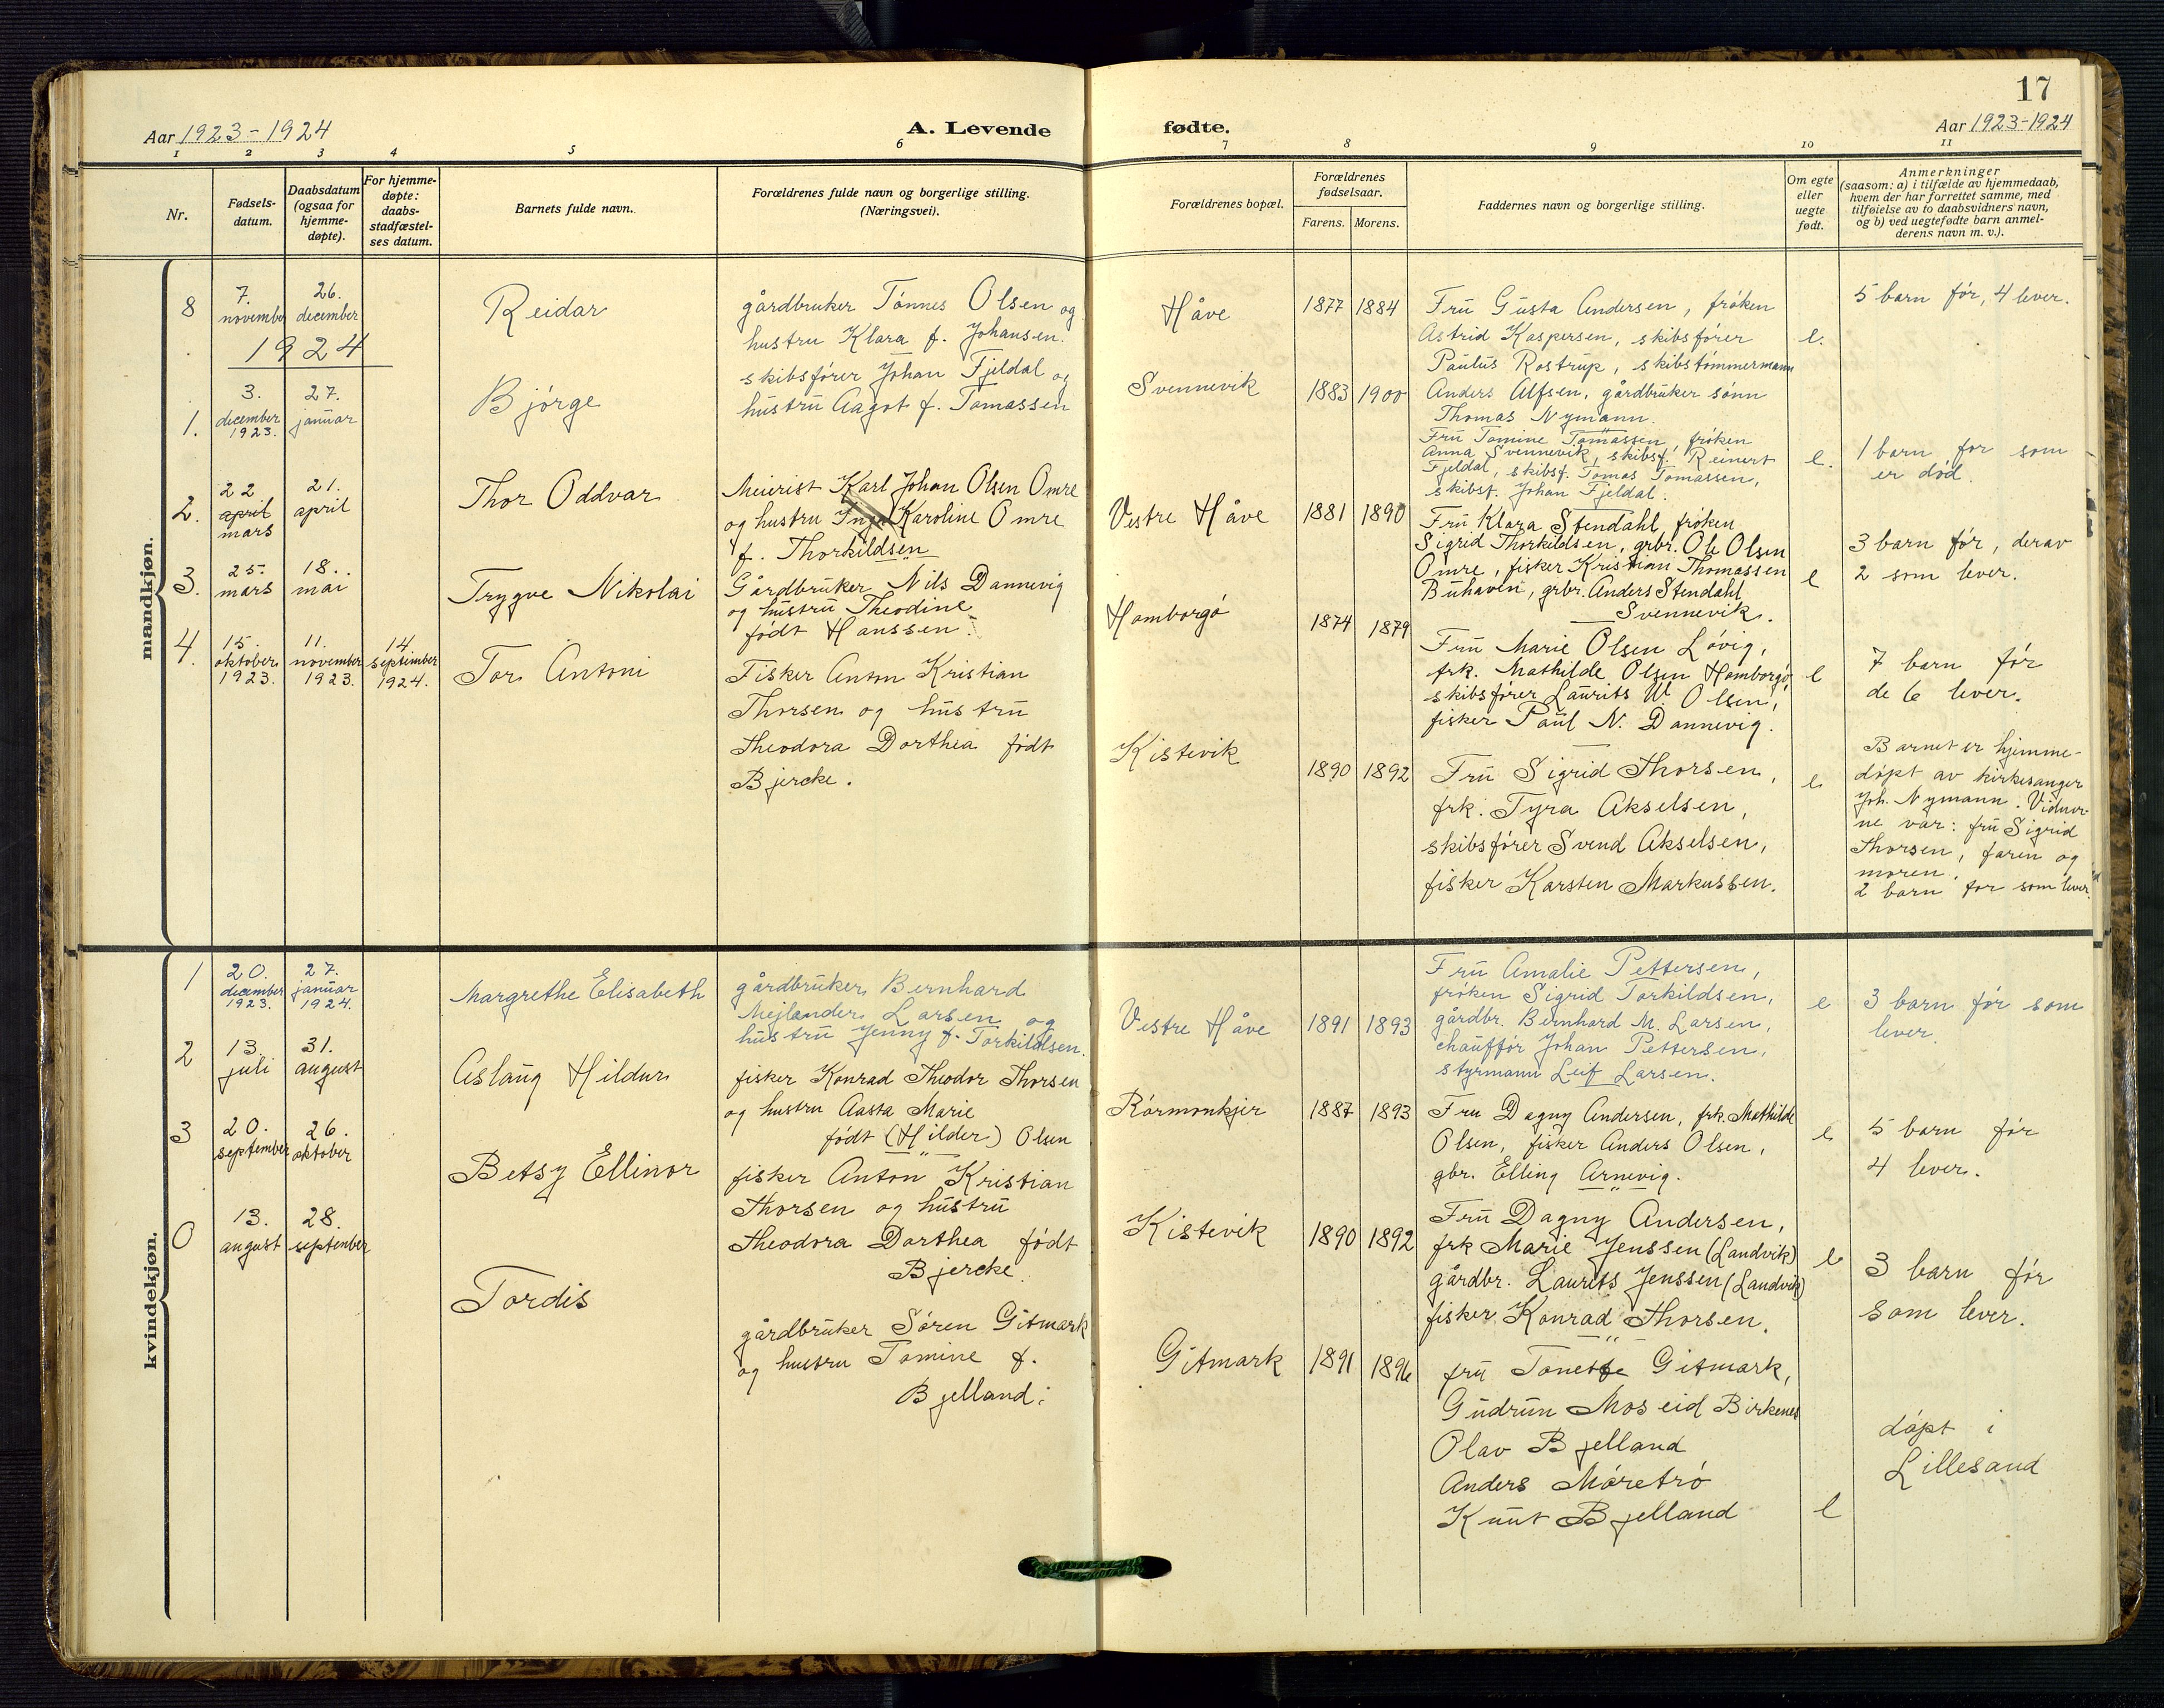 17
Aar 1923-1924
A. Levende
fødte.
Aar 1923-1924
1 2 3 4 5 6 7 8 9 10 11
Nr.
Fødsels-
datum.
Daabsdatum
(ogsaa for
hjemme-
døpte).
For hjemme-
døpte:
daabs-
stadfæstel-
ses datum.
Barnets fulde navn.
Forældrenes fulde navn og borgerlige stilling.
(Næringsvei).
Forældrenes bopæl.
Forældrenes
fødselsaar.
Farens. Morens.
Faddernes navn og borgerlige stilling.
Om egte
eller
uegte
født.
Anmerkninger
(saasom: a) i tilfælde av hjemmedaab,
hvem der har forrettet samme, med
tilføielse av to daabsvidners navn,
og b) ved uegtefødte barn anmel-
derens navn m. v.).
mandkjøn.
8
7.
november
26.
december
Reidar
gårdbruker Tönnes Olsen og
hustru Klara f. Johansen.
Håve
1877 1884
Frü Güsta Andersen, fröken
Astrid Kaspersen, skibsförer
Paulüs Rostrup, skibstömmermann
Anders Alfsen, gårdbrüker sönn
Thomas Nymann.
e.
5 barn för, 4 lever.
1924
1.
3.
december
1923.
27.
janüar
Björge
skibsförer Johan Fjeldal og
hüstrü Aagot f. Tomassen
Svennevik
1883 1900
Frü Tomine Tomassen, fröken
Anna Svennevik, skibsf. Reinert
Fjeldal, skibsf. Tomas Tomassen,
skibsf. Johan Fjeldal.
e.
1 barn for som
er död.
2.
22
april
mars
21.
april
Thor Oddvar
Meierist Karl Johan Olsen Omre
og hustru Inga Karoline Omre
f. Thorkildsen
Vestre Håve
1881 1890
Frü Klara Stendahl, fröken
Sigrid Thorkildsen, grbr. Ole Olsen
Omre, fisker Kristian Thomassen
Buhaven, grbr. Anders Stendahl
Svennevik.
e
3 barn för, derav
2 som lever.
3.
25.
mars
18.
mai
Trygve Nikolai
Gårdbrüker Nils Dannevig
og hüstrü Theodine
födt Hanssen.
Homborgö
1874 1879
Frü Marie Olsen Lövig,
frk. Mathilde Olsen Homborgö
skibsförer Laurits W. Olsen,
fisker Paül N. Dannevig.
e
7 barn för
de 6 lever.
4.
15.
oktober
1923.
11.
november
1923.
14.
september
1924.
Tor Antoni
Fisker Anton Kristian
Thorsen og hüstrü
Theodora Dorthea födt
Bjercke.
Kistevik
1890 1892
Frü Sigrid Thorsen,
frk. Tyra Akselsen,
skibsförer Svend Akselsen,
fisker Karsten Markussen.
e
Barnet er hjemme-
döpt av kirkesanger
Joh. Nymann. Vidner-
ne var: frü Sigrid
Thorsen, faren og
moren.
2 barn for som lever
kvindekjøn.
1
20.
december
1923.
27.
janüar
1924.
Margrethe Elisabeth
gårdbrüker Bernhard
Mejlander Larsen og
hüstrü Jenny f. Torkildsen.
Vestre Håve
1891 1893
Frü Amalie Pettersen,
fröken Sigrid Torkildsen,
gårdbr. Bernhard M. Larsen,
chaufför Johan Pettersen,
styrmann Leif Larsen.
e
3 barn för som
lever.
2
13.
juli
31.
august
Aslaüg Hildur
fisker Konrad Theodor Thorsen
og hustru Aasta Marie
födt (Hilder) Olsen
Rörmonkjer
1887 1893
Fru Dagny Andersen, frk. Mathilde
Olsen, fisker Anders Olsen,
gbr. Elling Arnevig.
e
5 barn för
4 lever.
3
20.
september
26.
oktober
Betsy Ellinor
fisker Anton Kristian
Thorsen og hüstrü
Theodora Dorthea födt
Bjercke.
Kistevik
1890 1892
Frü Dagny Andersen,
frk Marie Jenssen (Landvik)
gårdbr. Laurits Jenssen (Landvik)
fisker Konrad Thorsen.
e
3 barn för
som lever.
0
13.
august
28.
september
Tordis
gårdbrüker Sören Gitmark
og hustru Tomine f.
Bjelland.
Gitmark
1891 1896
frü Tonette Gitmark,
Güdrün Moseid Birkenes
Olav Bjelland
Anders Möretrö
Knüt Bjelland
e
döpt i
Lillesand